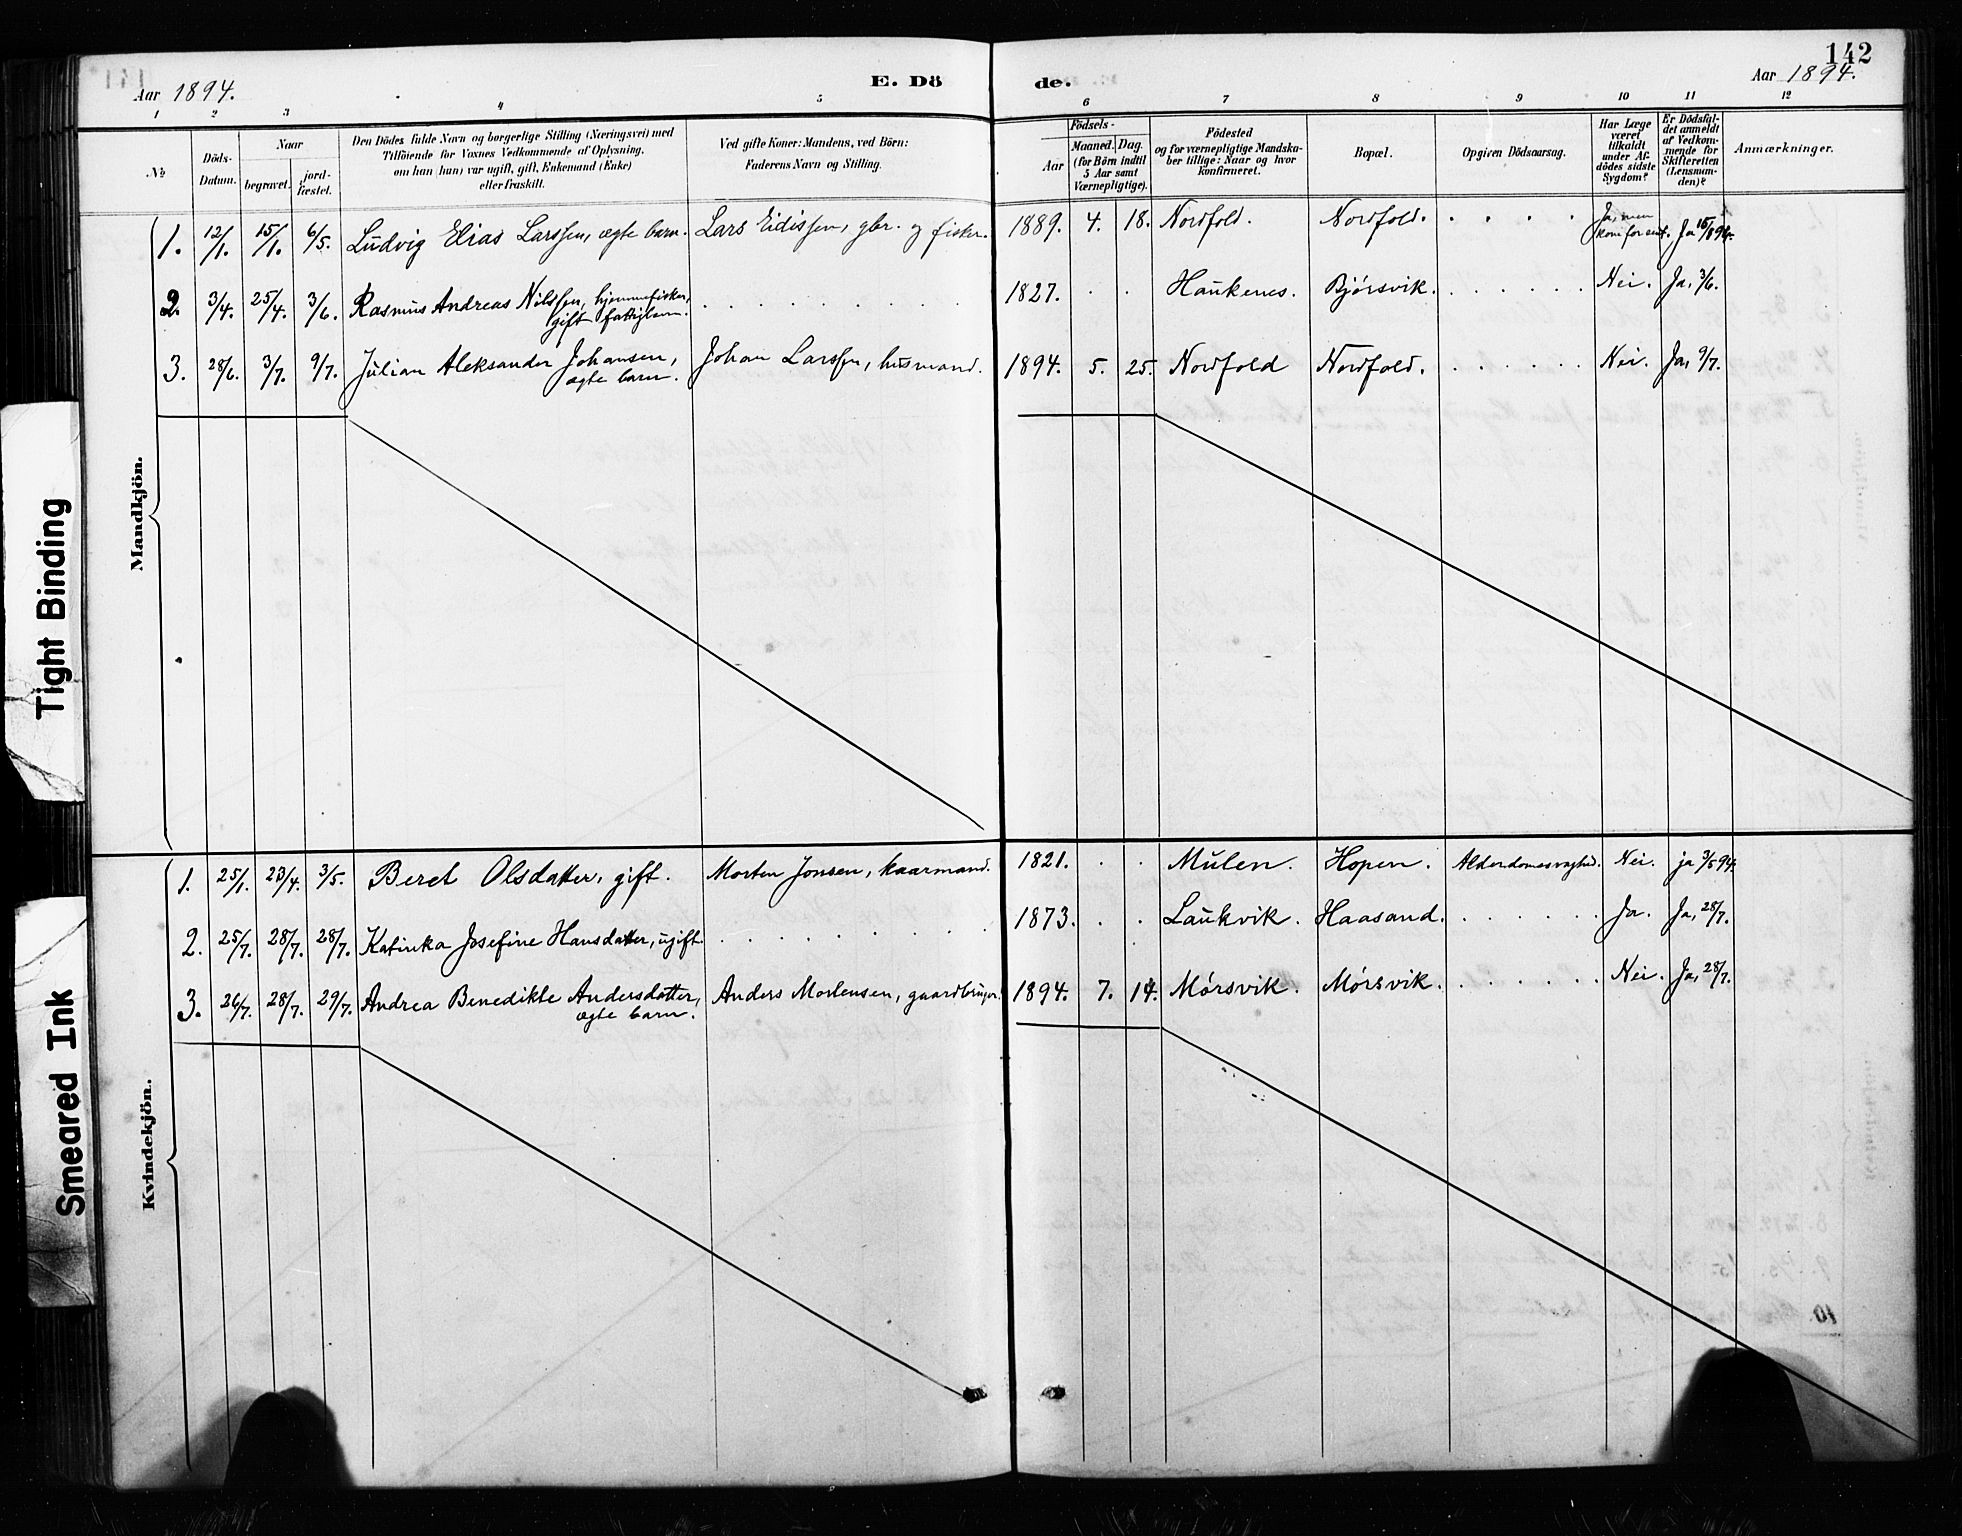 142
Aar 1894.
E. Dö
de.
Aar 1894.
1 2 3 4 5 6 7 8 9 10 11 12
№
Döds-
Datum.
Naar
begravet.
jord-
fæstet.
Den Dödes fulde Navn og borgerlige Stilling (Næringsvei) med
Tilföiende for Voxnes Vedkommende af Oplysning,
om han (hun) var ugift, gift, Enkemand (Enke)
eller fraskilt.
Ved gifte Koner: Mandens, ved Börn:
Faderens Navn og Stilling.
Födsels-
Aar
Maaned.
Dag.
(for Börn indtil
5 Aar samt
Værnepligtige).
Födested
og for værnepligtige Mandska-
ber tillige: Naar og hvor
konfirmeret.
Bopæl.
Opgiven Dödsaarsag.
Har Læge
været
tilkaldt
under Af-
dödes sidste
Sygdom?
Er Dödsfal-
det anmeldt
af Vedkom-
mende for
Skifteretten
(Lensman-
den)?
Anmærkninger.
Mandkjön.
1. 12/1. 15/1. 6/5. Ludvig Elias Larssen, ægte barn. Lars Eidissen, gbr. og fisker. 1889. 4. 18. Nordfold. Nordfold. . . . . Ja, men
kom for sent. Ja 15/1 894.
2. 3/4. 25/4. 3/6. Rasmus Andreas Nilssen, hjemmefisker,
gift fattiglem. . . . . . . . 1827. . . Haukenes. Bjórsvik. . . . . . . Nei. Ja, 3/6.
3. 28/6. 3/7. 9/7. Julian Aleksander Johansen,
ægte barn. Johan Larssen, husmand. 1894. 5. 25. Nordfold Nordfold. . . . . . . Nei. Ja, 9/7.
Kvindekjön.
1. 25/1. 23/4. 3/5. Beret Olsdatter, gift. Morten Jonsen, kaarmand. 1821. . . Mulen. Hopen. Alderdomssvaghed. Nei. ja 3/5 94.
2. 25/7. 28/7. 28/7. Katinka Josefine Hansdatter, ugift. . . . . . . . 1873. . . Laukvik. Haasand. . . . . . . Ja. Ja, 28/7.
3. 26/7. 28/7. 29/7. Andrea Benedikte Andersdatter,
ægte barn. Anders Mortensen, gaardbruger. 1894. 7. 14. Mørsvik. Mórsvik. . . . . . . Nei. Ja, 28/7.
Tight Binding
Smeared Ink